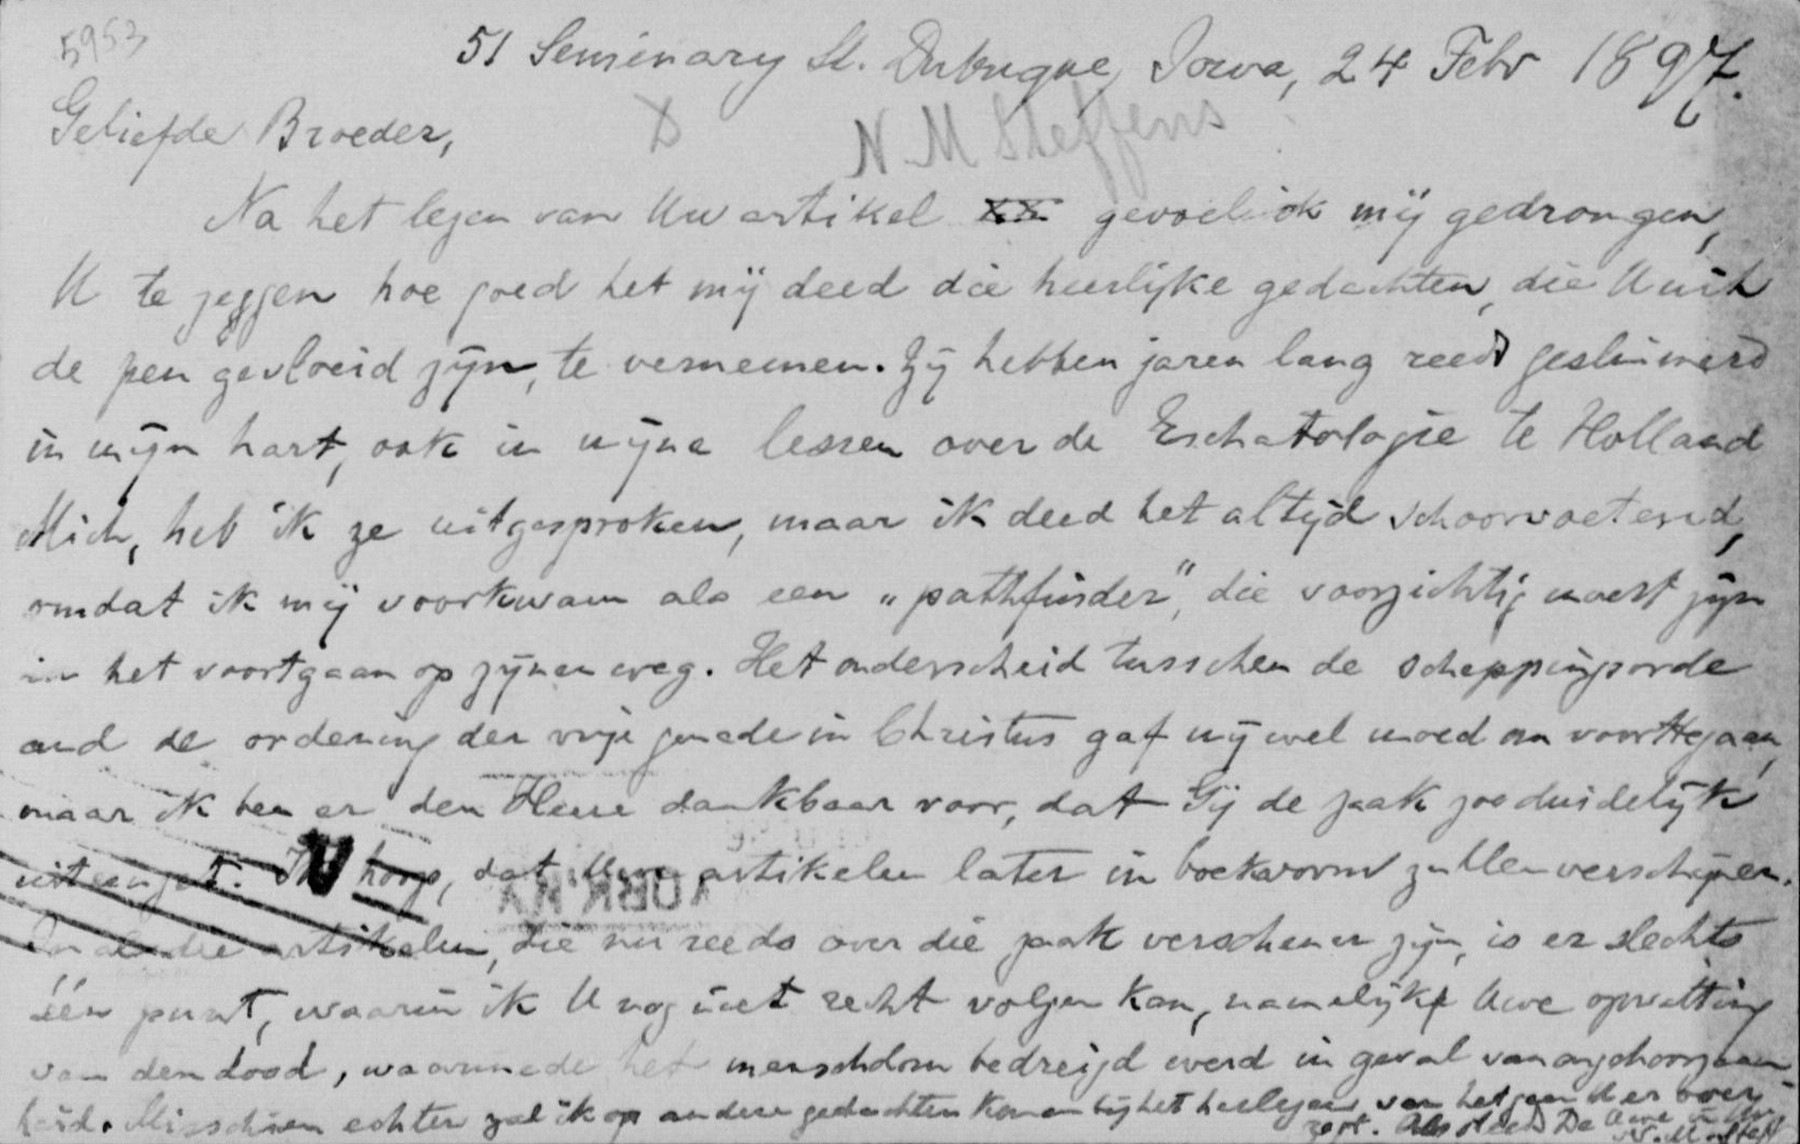 5953
51 Seminary St. Dubuque, Iowa, 24 Febr 1897.
Geliefde Broeder,
X N M Steffens
Na het lezen van Uw artikel XX gevoel ik mij gedrongen,
U te zeggen hoe goed het mij deed die heerlijke gedachten, die U uit
de pen gevloeid zijn, te vernemen. Zij hebben jaren lang reeds gesluimerd
in mijn hart, ook in mijne lessen over de Eschatologie te Holland
Mich, heb ik ze uitgesproken, maar ik deed het altijd schoorvoetend,
omdat ik mij voorkwam als een „pathfinder", die voorzichtig moest zijn
in het voortgaan op zijnen weg. Het onderscheid tusschen de scheppingsorde
and de ordening der vrije genade in Christus gaf mij wel moed om voorttegaan,
maar ik ben er den Heere dankbaar voor, dat Gij de zaak zoo duidelijk
uiteenzet. Ik hoop, dat Uwe artikelen later in boekvorm zullen verschijnen.
In al die artikelen, die nu reeds over die zaak verschenen zijn, is er slechts
YORK, N.Y.
één punt, waarin ik U nog niet recht volgen kan, namelijk Uwe opvatting
van den dood, waarmede het menschdom bedreigd werd in geval van ongehoorzaam-
heid. Misschien echter zal ik op andere gedachten komen bij het herlezen van hetgeen U er over
zegt. Als steeds De Uwe in
N. M. Steffens